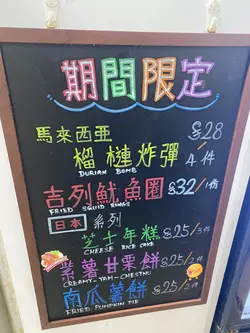 期間限定
馬來西亞 $28
榴槤炸彈 4件
DURIAN BOMB
吉列魷魚圈 $32/1份
FRIED SQUID RINGS
日本 系列
芝士年糕 $25/3件
CHEESE RICE CAKE
紫薯甘栗餅 $25/2件
CREAMY-YAM-CHESTNU
南瓜薯餅 $25/2件
FRIED PUMPKIN PIE